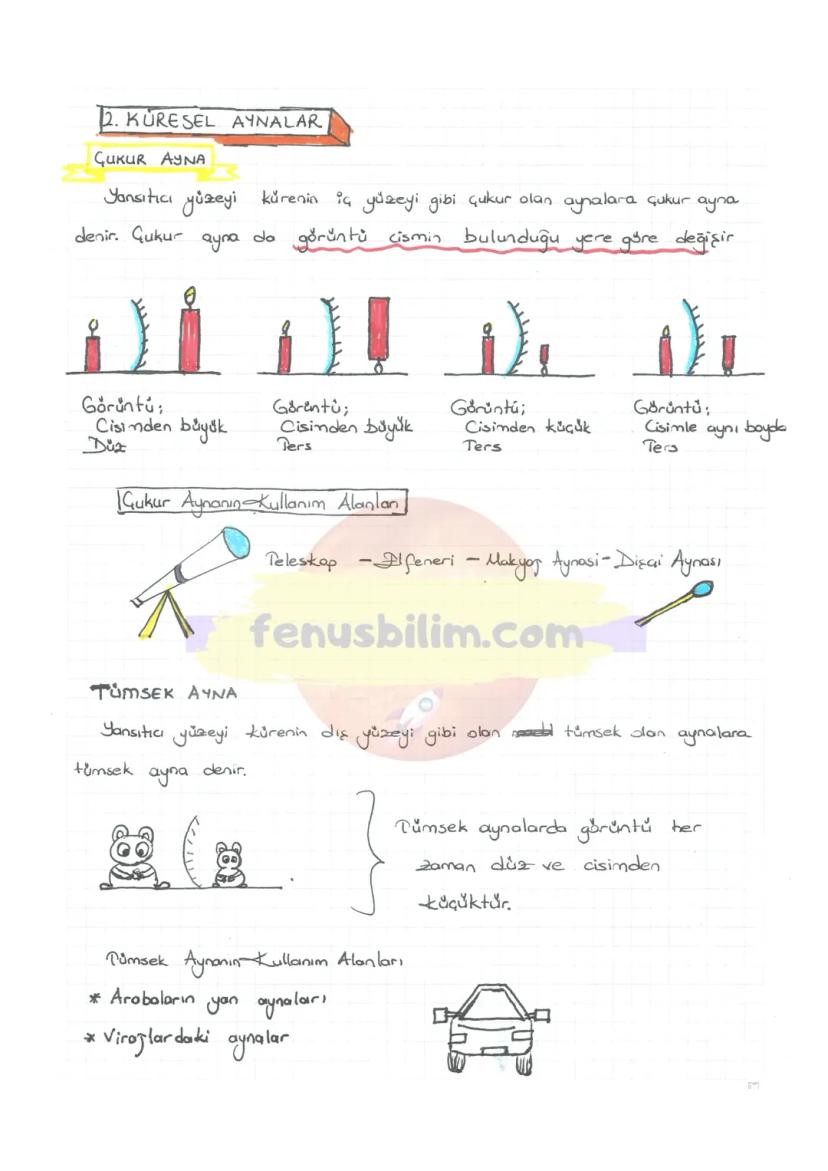 2. KÜRESEL AYNALAR
ÇUKUR AYNA
Yansıtıcı yüzeyi kürenin iç yüzeyi gibi çukur olan aynalara çukur ayna
denir. Çukur ayna da görüntü cismin bulunduğu yere göre değişir
Görüntü; Görüntü; Görüntü; Görüntü;
Cisimden büyük Cisimden büyük Cisimden küçük Cisimle aynı boyda
Düz Ters Ters Ters
Çukur Aynanın Kullanım Alanları
Teleskop - Elfeneri - Makyaj Aynası - Dişçi Aynası
fenusbilim.com
TÜMSEK AYNA
Yansıtıcı yüzeyi kürenin dış yüzeyi gibi olan tümsek olan aynalara
tümsek ayna denir.
Tümsek aynalarda görüntü her
zaman düz ve cisimden
küçüktür.
Tümsek Aynanın Kullanım Alanları
* Arabaların yan aynaları
* Virajlardaki aynalar